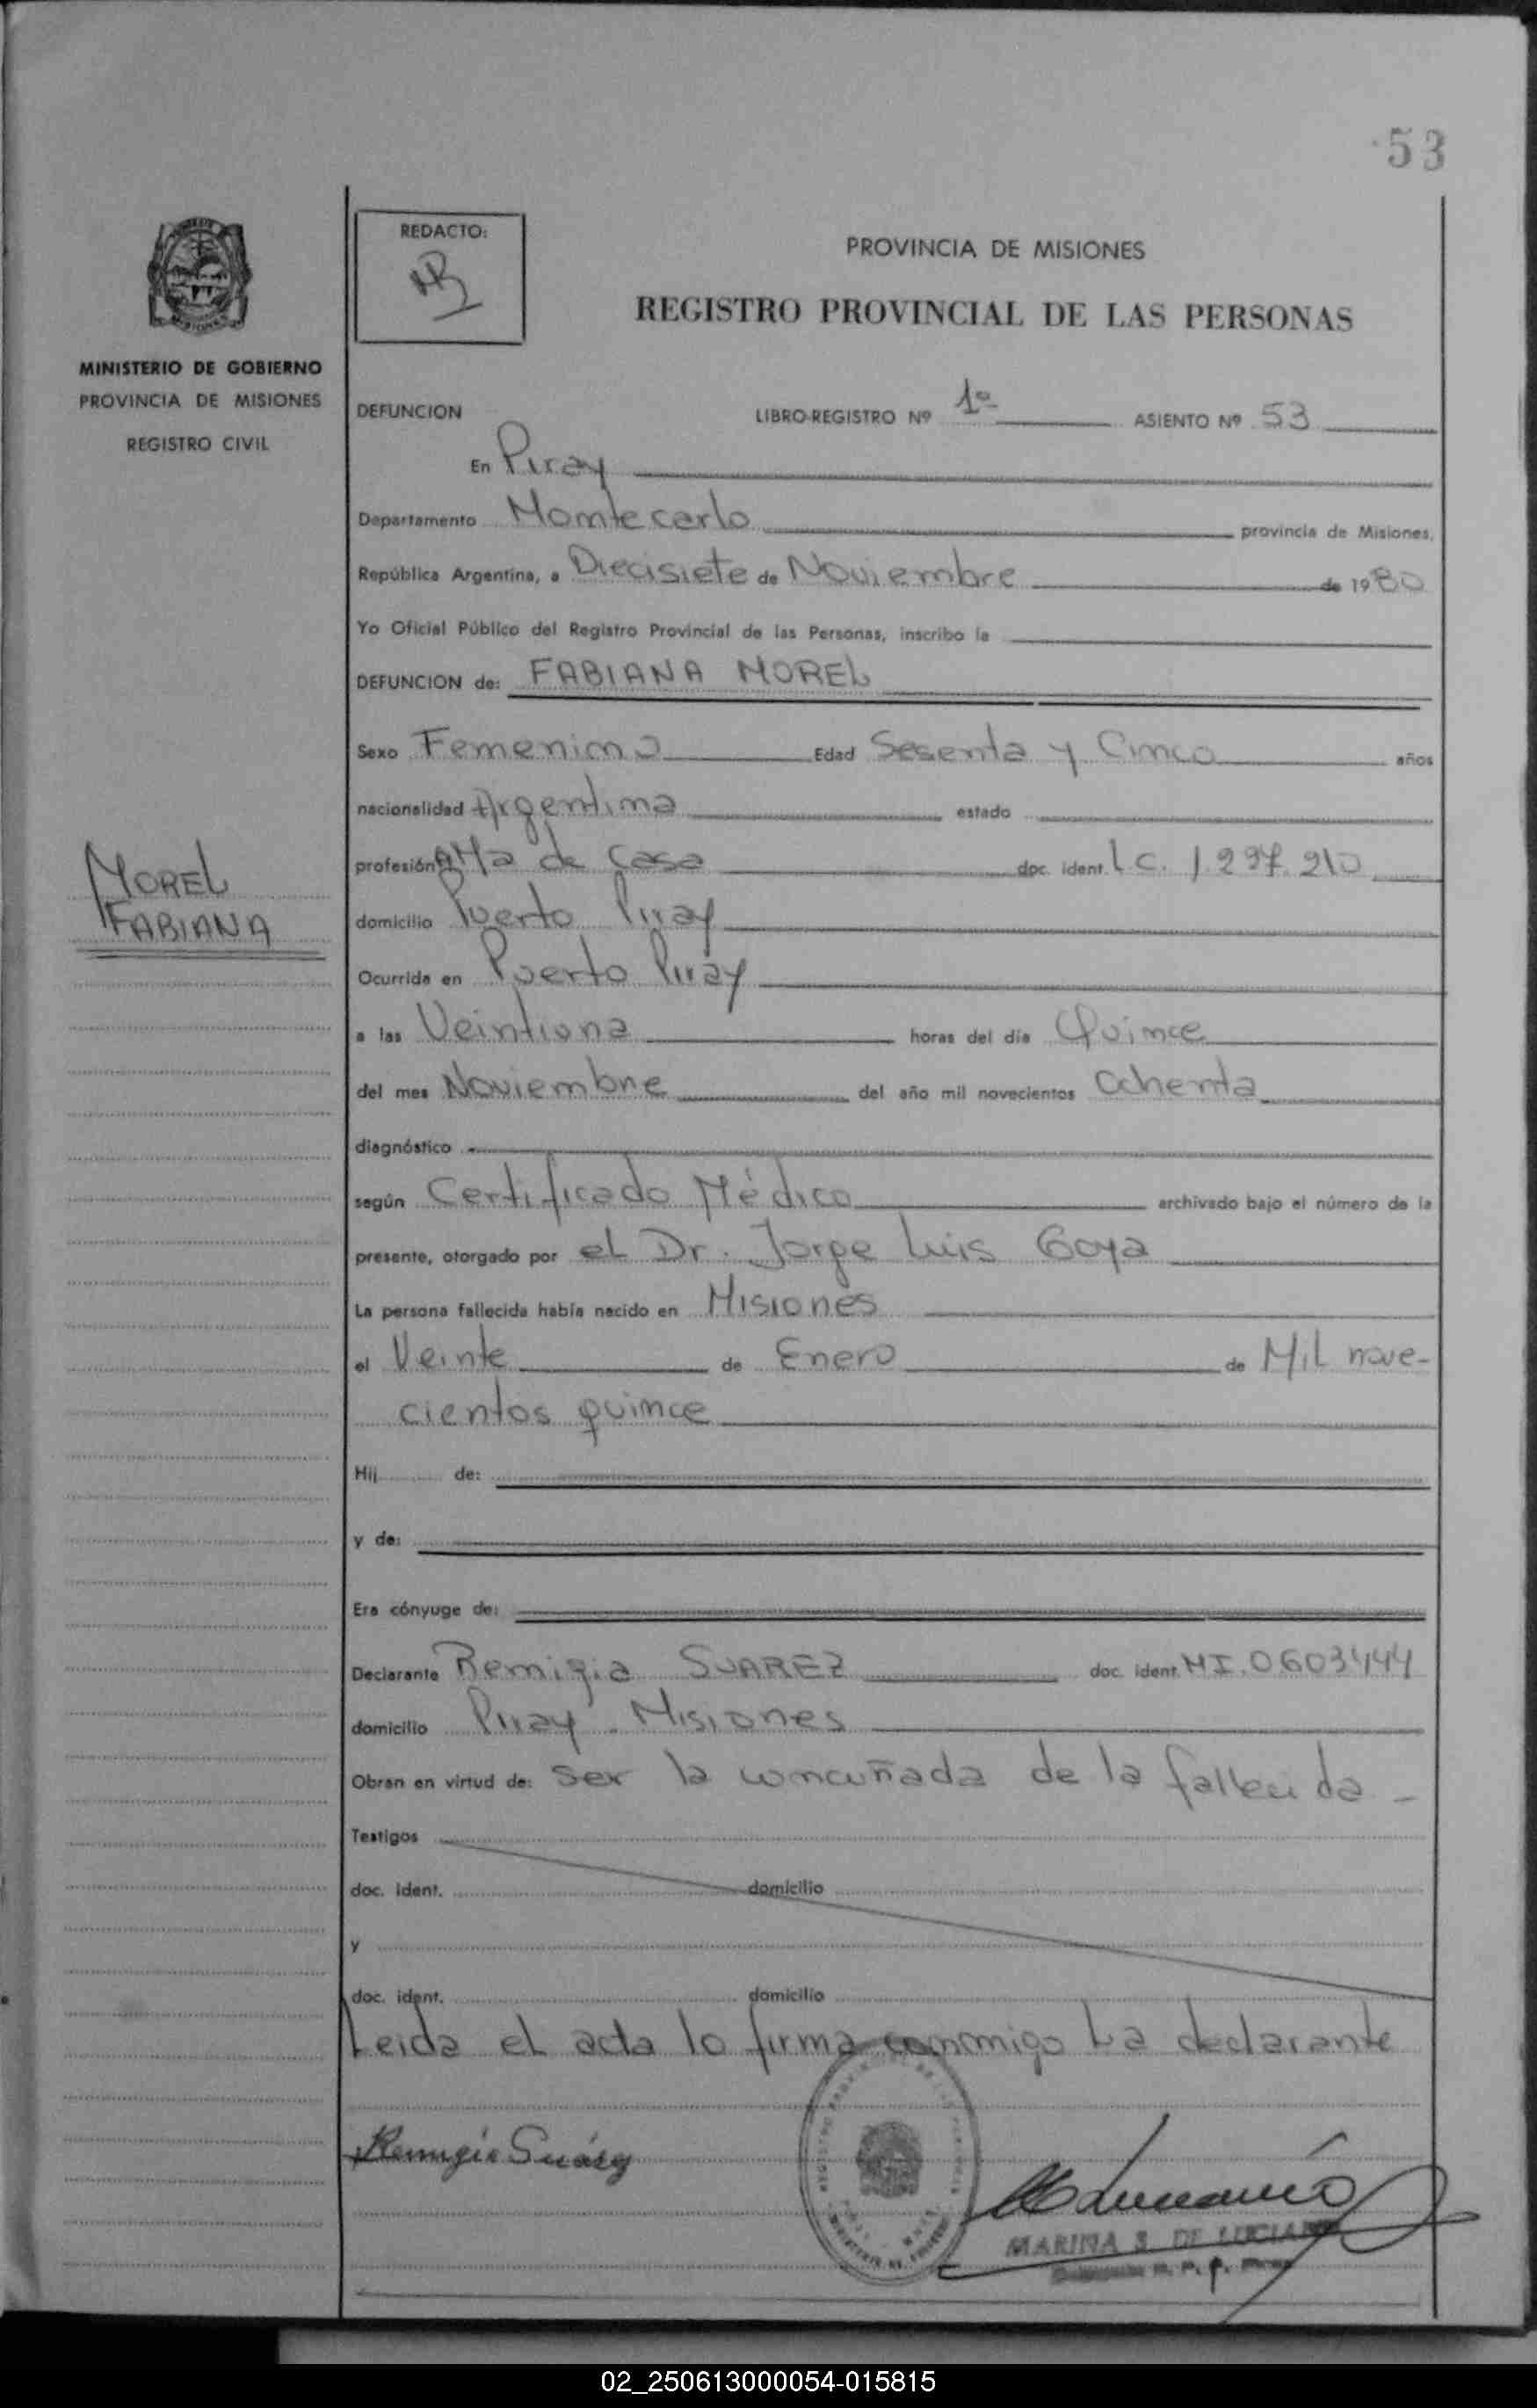 53
REDACTO:
PROVINCIA DE MISIONES
REGISTRO PROVINCIAL DE LAS PERSONAS
MINISTERIO DE GOBIERNO
PROVINCIA DE MISIONES
REGISTRO CIVIL
DEFUNCION LIBRO-REGISTRO Nº 1º ASIENTO Nº 53
En Piray
Departamento Montecarlo provincia de Misiones,
República Argentina, a Diecisiete de Noviembre de 1980
Yo Oficial Público del Registro Provincial de las Personas, inscribo la
DEFUNCION de: FABIANA MOREL
Sexo Femenino Edad Sesenta y Cinco años
nacionalidad Argentina estado
MOREL
FABIANA
profesión AMa de Casa doc. ident. L C. 1.297.210
domicilio Puerto Piray
Ocurrida en Puerto Piray
a las Veintiuna horas del día Quince
del mes Noviembre del año mil novecientos Ochenta
diagnóstico
según Certificado Médico archivado bajo el número de la
presente, otorgado por el Dr. Jorge Luis Goya
La persona fallecida había nacido en Misiones
el Veinte de Enero de Mil nove-
cientos quince
Hij de:
y de:
Era cónyuge de:
Declarante Remigia SUAREZ doc. ident. MI. 0603444
domicilio Piray Misiones
Obran en virtud de: ser la concuñada de la fallecida -
Testigos
doc. ident. domicilio
y
doc. ident. domicilio
Leida el acta lo firma conmigo La declarante
Remigia Suárez
MARINA S. DE LUCIANO
02_250613000054-015815